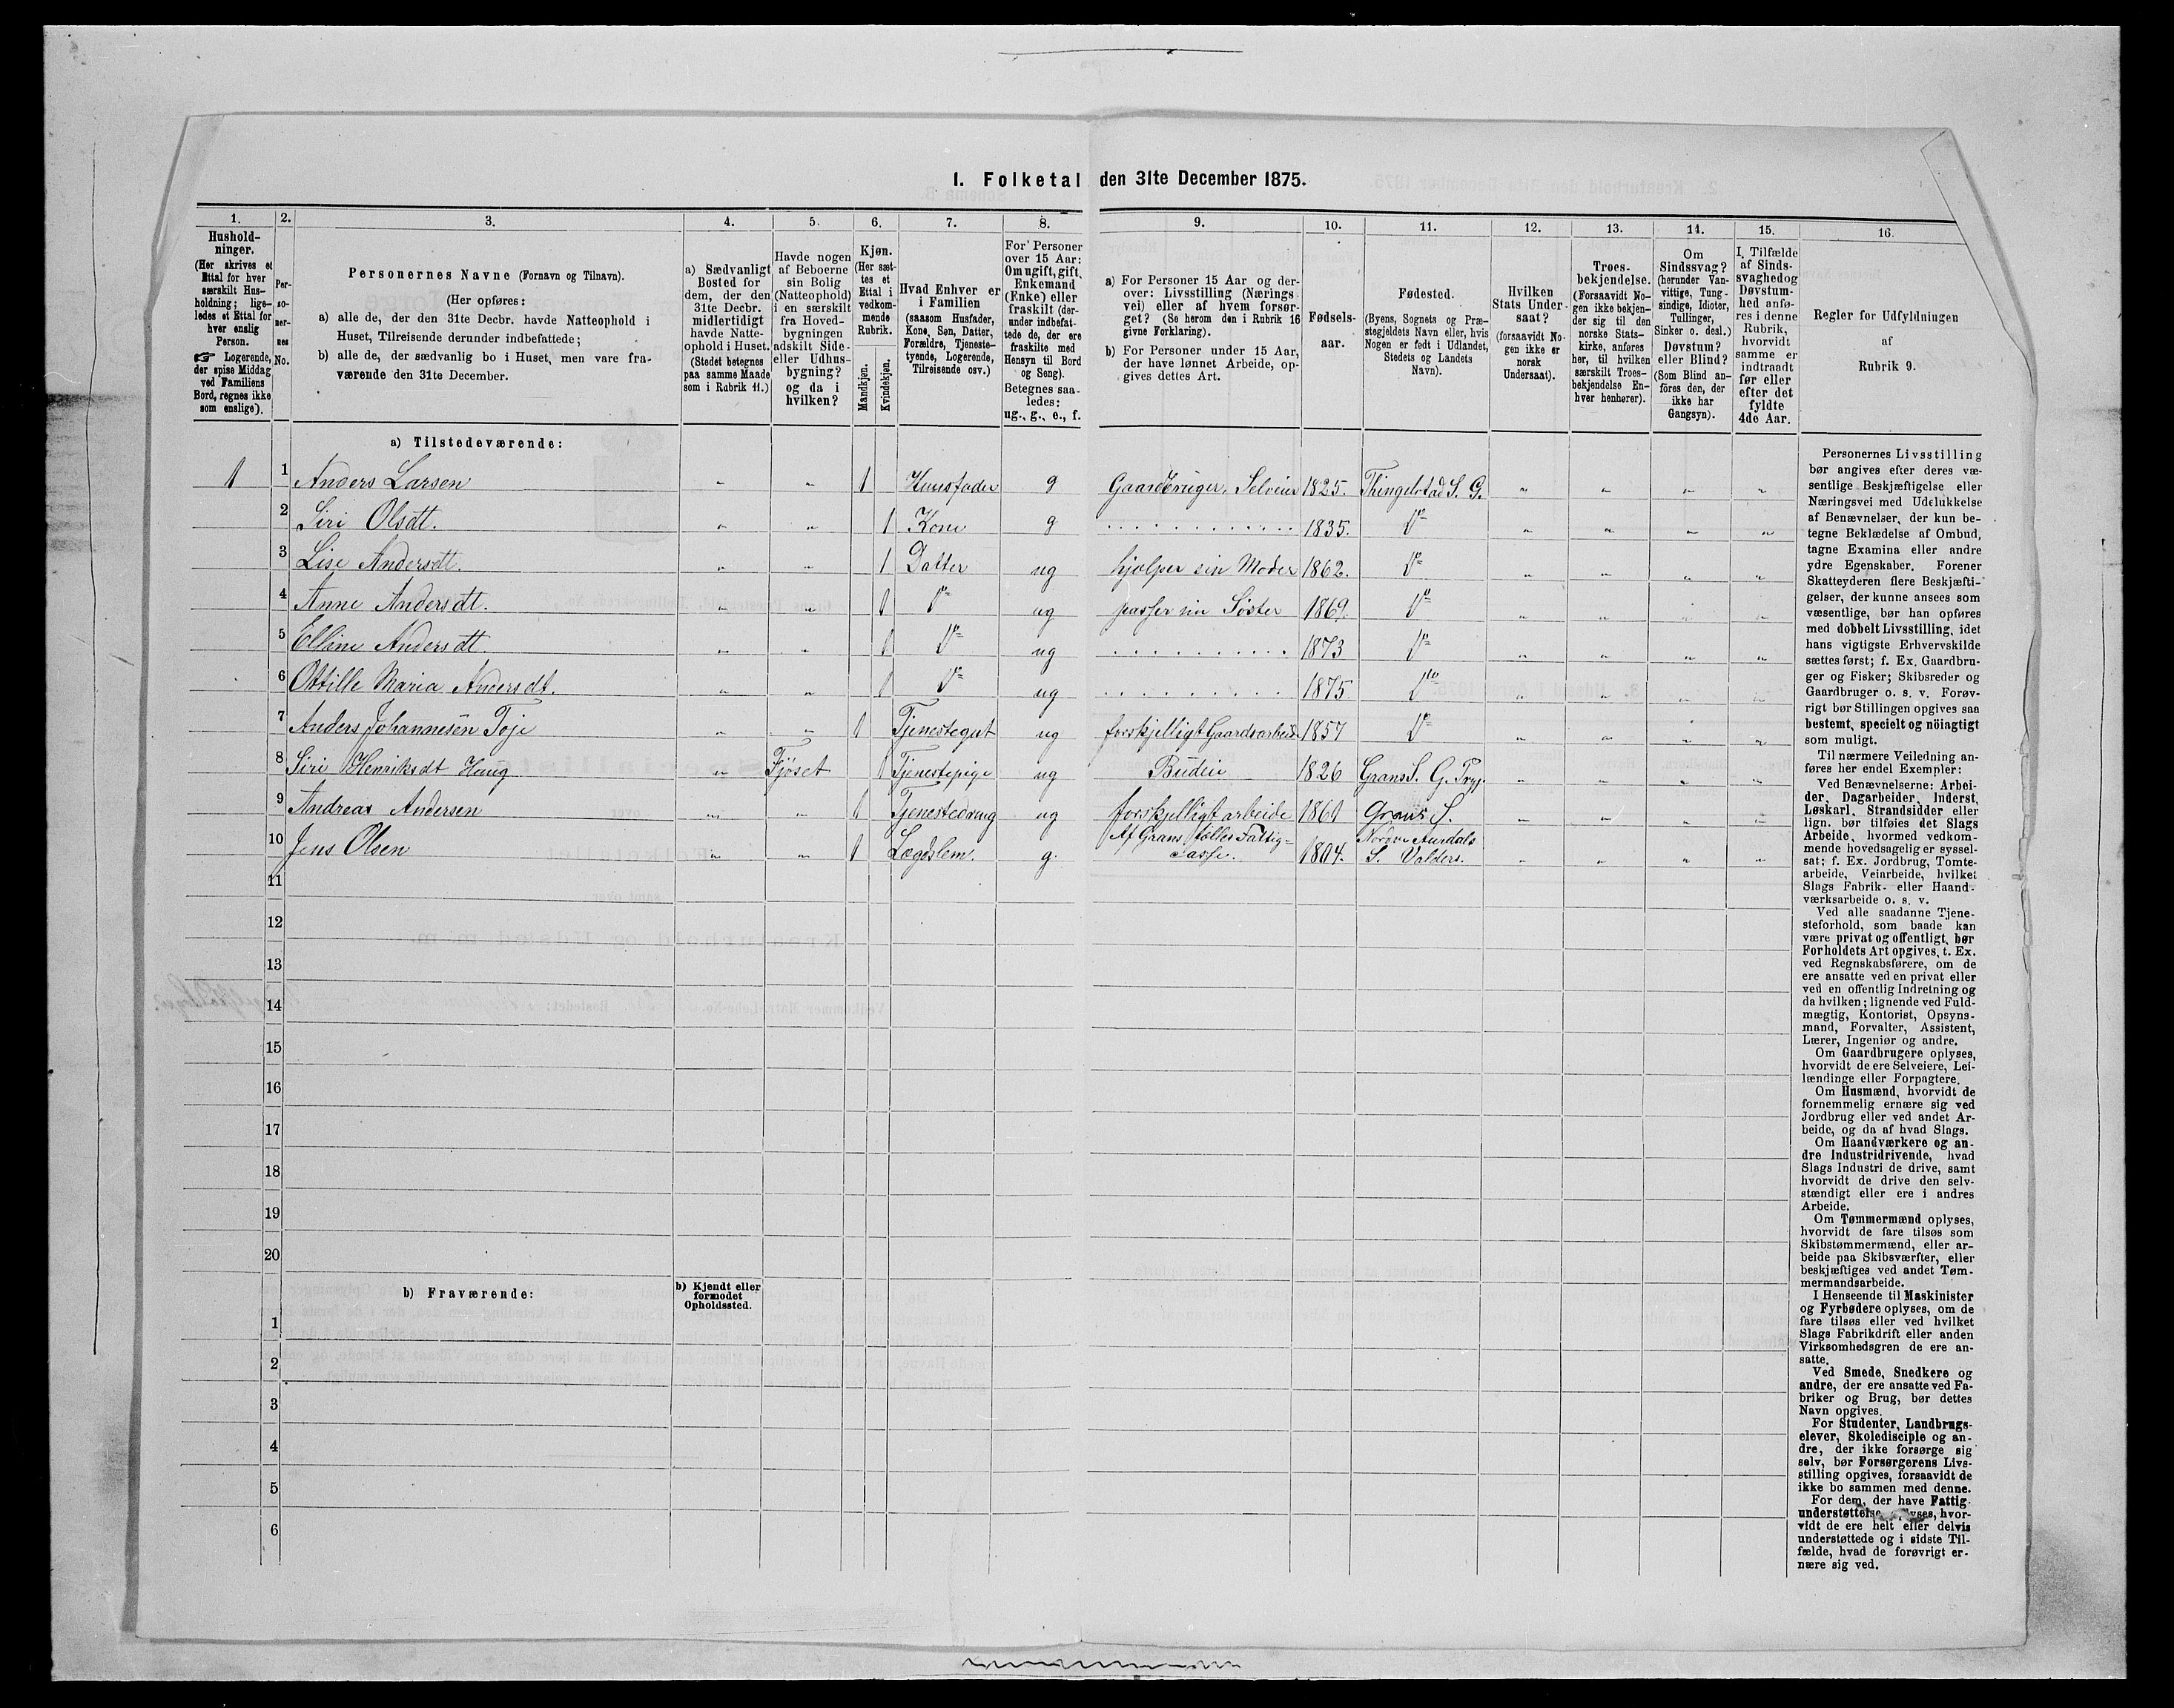 I. Folketal den 31te December 1875.
1. 2. 3. 4. 5. 6. 7. 8. 9. 10. 11. 12. 13. 14. 15. 16.
Hushold-
ninger.
(Her skrives et
Ettal for hver
særskilt Hus-
holdning; lige-
ledes et Ettal for
hver enslig
Person.
☞ Logerende,
der spise Middag
ved Familiens
Bord, regnes ikke
som enslige).
Per-
so-
ner-
nes
No.
Personernes Navne (Fornavn og Tilnavn).
(Her opføres:
a) alle de, der den 31te Decbr. havde Natteophold i
Huset, Tilreisende derunder indbefattede;
b) alle de, der sædvanlig bo i Huset, men vare fra-
værende den 31te December.
a) Sædvanligt
Bosted for
dem, der den
31te Decbr.
midlertidigt
havde Natte-
ophold i Huset.
(Stedet betegnes
paa samme Maade
som i Rubrik 11.)
Havde nogen
af Beboerne
sin Bolig
(Natteophold)
i en særskilt
fra Hoved-
bygningen
adskilt Side-
eller Udhus-
bygning?
og da i
hvilken?
Kjøn.
(Her sæt-
tes et
Ettal i
vedkom-
mende
Rubrik.
Mandkjøn.
Kvindekjøn.
Hvad Enhver er
i Familien
(saasom Husfader,
Kone, Søn, Datter,
Forældre, Tjeneste-
tyende, Logerende,
Tilreisende osv.)
For Personer
over 15 Aar:
Om ugift, gift,
Enkemand
(Enke) eller
fraskilt (der-
under indbefat-
tede de, der ere
fraskilte med
Hensyn til Bord
og Seng).
Betegnes saa-
ledes:
ug., g., e., f.
a) For Personer 15 Aar og der-
over: Livsstilling (Nærings-
vei) eller af hvem forsør-
get? (Se herom den i Rubrik 16
givne Forklaring).
b) For Personer under 15 Aar,
der have lønnet Arbeide, op-
gives dettes Art.
Fødsels-
aar.
Fødested.
(Byens, Sognets og Præ-
stegjeldets Navn eller, hvis
Nogen er født i Udlandet,
Stedets og Landets
Navn).
Hvilken
Stats Under-
saat?
(forsaavidt No-
gen ikke er
norsk
Undersaat).
Troes-
bekjendelse.
(Forsaavidt No-
gen ikke bekjen-
der sig til den
norske Stats-
kirke, anføres
her, til hvilken
særskilt Troes-
bekjendelse En-
hver henhører).
Om
Sindssvag?
(herunder Van-
vittige, Tung-
sindige, Idioter,
Tullinger,
Sinker o. desl.)
Døvstum?
eller Blind?
(Som Blind an-
føres den, der
ikke har
Gangsyn).
I Tilfælde
af Sinds-
svaghed og
Døvstum-
hed anfø-
res i denne
Rubrik,
hvorvidt
samme er
indtraadt
før eller
efter det
fyldte
4de Aar.
Regler for Udfyldningen
af
Rubrik 9.
a) Tilstedeværende:
1 1 Anders Larsen " " 1 Huusfader g Gaardbruger, Selveier 1825. Thingelstad S. G. " " " "
2 Siri Olsdt. " " 1 Kone g 1835. Do " " " "
3 Lise Andersdt. " " 1 Datter ug hjælper sin Moder 1862. Do " " " "
4 Anne Andersdt. " " 1 Do ug passer sin Søster 1869. Do " " " "
5 Elline Andersdt. " " 1 Do ug 1873 Do " " " "
6 Ottille Maria Andersdt. " " 1 Do ug 1875. Do " " " "
7 Anders Johannesen Toje " " 1 Tjenestegut ug forskjelligt Gaardsarbeide 1857 Do " " " "
8 Siri Henriksdt Haug " Fjöset 1 Tjenestepige ug Budeie 1826 Grans S. G. " " " "
9 Andreas Andersen " " 1 Tjenestedreng ug forskjelligt arbeide 1861 Grans S. " " " "
10 Jens Olsen " " 1 Lægdslem. g. Af Grans fælles Fattig-
casse. 1804. Nordre Aurdals
S. Valders. " " " "
11
12
13
14
15
16
17
18
19
20
b) Fraværende:
b) Kjendt eller
formodet
Opholdssted.
1
2
3
4
5
6
Personernes Livsstilling
bør angives efter deres væ-
sentlige Beskjæftigelse eller
Næringsvei med Udelukkelse
af Benævnelser, der kun be-
tegne Beklædelse af Ombud,
tagne Examina eller andre
ydre Egenskaber. Forener
Skatteyderen flere Beskjæfti-
gelser, der kunne ansees som
væsentlige, bør han opføres
med dobbelt Livsstilling, idet
hans vigtigste Erhvervskilde
sættes først; f. Ex. Gaardbru-
ger og Fisker; Skibsreder og
Gaardbruger o. s. v. Forøv-
rigt bør Stillingen opgives saa
bestemt, specielt og nöiagtigt
som muligt.
Til nærmere Veiledning an-
føres her endel Exempler:
Ved Benævnelserne: Arbei-
der, Dagarbeider, Inderst,
Løskarl, Strandsidder eller
lign. bør tilføies det Slags
Arbeide, hvormed vedkom-
mende hovedsagelig er syssel-
sat; f. Ex. Jordbrug, Tomte-
arbeide, Veiarbeide, hvilket
Slags Fabrik- eller Haand-
værksarbeide o. s. v.
Ved alle saadanne Tjene-
steforhold, som baade kan
være privat og offentligt, bør
Forholdets Art opgives, t. Ex.
ved Regnskabsførere, om de
ere ansatte ved en privat eller
ved en offentlig Indretning og
da hvilken; lignende ved Fuld-
mægtig, Kontorist, Opsyns-
mand, Forvalter, Assistent,
Lærer, Ingeniør og andre.
Om Gaardbrugere oplyses,
hvorvidt de ere Selveiere, Lei-
lændinge eller Forpagtere.
Om Husmænd, hvorvidt de
fornemmelig ernære sig ved
Jordbrug eller ved andet Ar-
beide, og da af hvad Slags.
Om Haandværkere og an-
dre Industridrivende, hvad
Slags Industri de drive, samt
hvorvidt de drive den selv-
stændigt eller ere i andres
Arbeide.
Om Tømmermænd oplyses,
hvorvidt de fare tilsøs som
Skibstømmermænd, eller ar-
beide paa Skibsværfter, eller
beskjæftiges ved andet Tøm-
mermandsarbeide.
I Henseende til Maskinister
og Fyrbødere oplyses, om de
fare tilsøs eller ved hvilket
Slags Fabrikdrift eller anden
Virksomhedsgren de ere an-
satte.
Ved Smede, Snedkere og
andre, der ere ansatte ved Fa-
briker og Brug, bør dettes
Navn opgives.
For Studenter, Landbrugs-
elever, Skoledisciple og an-
dre, der ikke forsørge sig
selv, bør Forsørgerens Livs-
stilling opgives, forsaavidt de
ikke bo sammen med denne.
For dem, der have Fattig-
understøttelse, hvor-
vidt de ere helt eller delvis
understøttede og i sidste Til-
fælde, hvad de forøvrigt er-
nære sig ved.